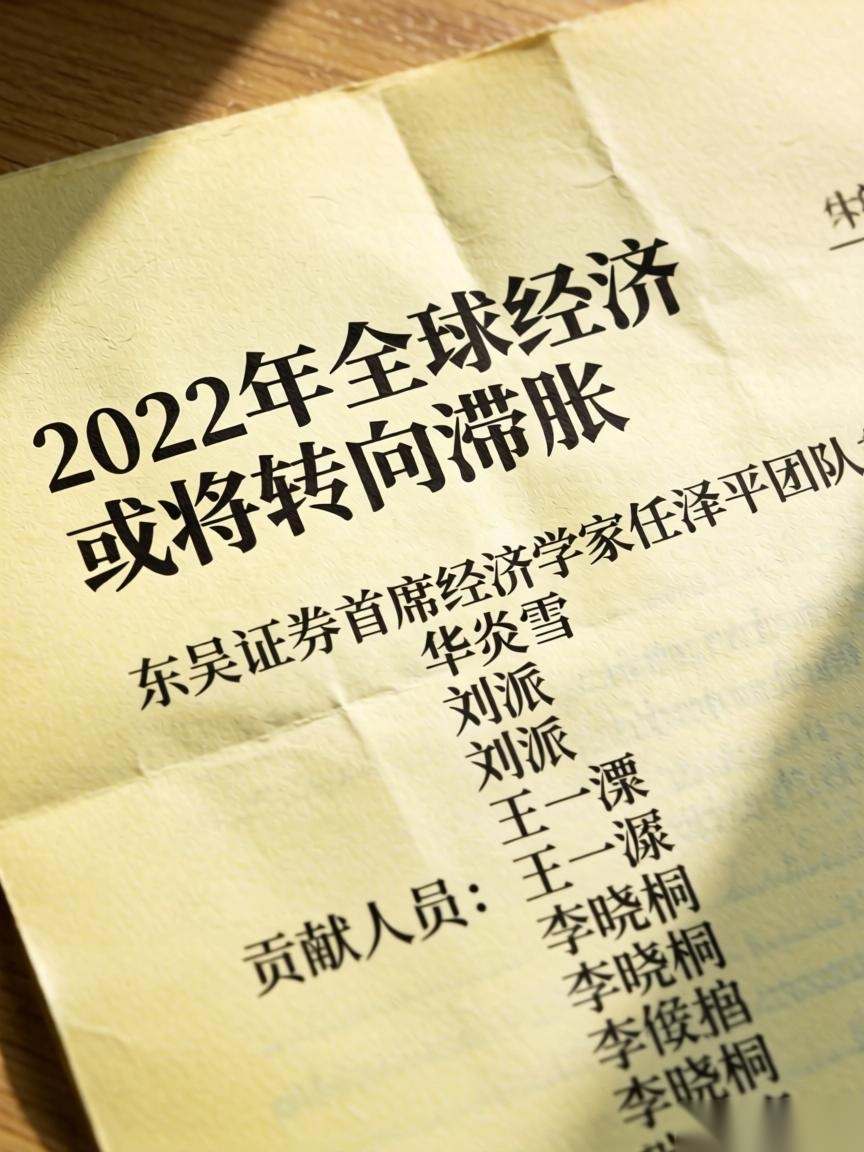 2022年全球经济
或将转向滞胀
东吴证券首席经济学家任泽平团队
华炎雪
刘派
刘派
王一溧
王一
李晓桐
贡献人员：
李晓桐
李
李晓桐